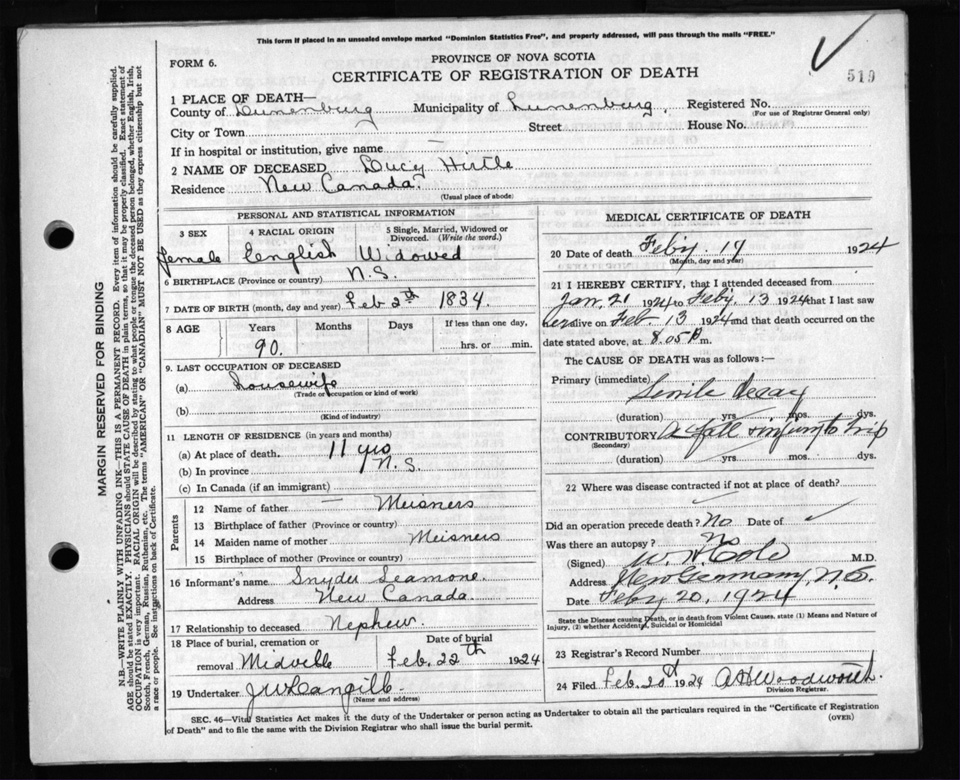 This form if placed in an unsealed envelope marked "Dominion Statistics Free", and properly addressed, will pass through the mails "FREE."
FORM 6.
PROVINCE OF NOVA SCOTIA
CERTIFICATE OF REGISTRATION OF DEATH
519
1 PLACE OF DEATH—
County of Lunenburg Municipality of Lunenburg. Registered No.
(For use of Registrar General only)
City or Town Street House No.
If in hospital or institution, give name —
2 NAME OF DECEASED Lucy Hirtle
Residence New Canada.
(Usual place of abode)
PERSONAL AND STATISTICAL INFORMATION
3 SEX 4 RACIAL ORIGIN 5 Single, Married, Widowed or Divorced. (Write the word.)
female English Widowed
6 BIRTHPLACE (Province or country) N.S.
7 DATE OF BIRTH (month, day and year) Feb 2th 1834
8 AGE Years Months Days If less than one day,
90. hrs. or min.
9. LAST OCCUPATION OF DECEASED
(a) housewife
(Trade or occupation or kind of work)
(b)
(Kind of industry)
11 LENGTH OF RESIDENCE (in years and months)
(a) At place of death. 11 yrs
(b) In province N.S.
(c) In Canada (if an immigrant)
Parents
12 Name of father — Meisners
13 Birthplace of father (Province or country)
14 Maiden name of mother Meisners
15 Birthplace of mother (Province or country)
16 Informant's name Snyder Seamone.
Address New Canada.
17 Relationship to deceased Nephew.
18 Place of burial, cremation or removal Midville
Date of burial Feb. 22th 1924
19 Undertaker
(Name and address)
MEDICAL CERTIFICATE OF DEATH
20 Date of death Feby. 19 1924
(Month, day and year)
21 I HEREBY CERTIFY, that I attended deceased from
Jan. 21 1924 to Feby. 13 1924 that I last saw
her alive on Feb. 13 1924 and that death occurred on
date stated above, at 8.05 P. m.
The CAUSE OF DEATH was as follows:—
Primary (immediate) Senile decay
(duration) yrs. mos. dys.
CONTRIBUTORY A fall & injury to hip
(Secondary)
(duration) yrs. mos. dys.
22 Where was disease contracted if not at place of death?
Did an operation precede death? No Date of
Was there an autopsy? No
(Signed) W. H. Cole M.D.
Address New Germany, N.S.
Date Feby 20, 1924
State the Disease causing Death, or in death from Violent Causes, state (1) Means and Nature of Injury, (2) whether Accidental, Suicidal or Homicidal
23 Registrar's Record Number
24 Filed Feb. 20th 1924 A H Woodworth.
Division Registrar.
SEC. 46—Vital Statistics Act makes it the duty of the Undertaker or person acting as Undertaker to obtain all the particulars required in the "Certificate of Registration
of Death" and to file the same with the Division Registrar who shall issue the burial permit. (OVER)
MARGIN RESERVED FOR BINDING
N.B.—WRITE PLAINLY WITH UNFADING INK—THIS IS A PERMANENT RECORD. Every item of information should be carefully supplied.
AGE should be stated EXACTLY. PHYSICIANS should STATE CAUSE OF DEATH in plain terms, so that it may be properly classified. Exact statement of
OCCUPATION is very important. RACIAL ORIGIN will be described by stating to what people or tongue the deceased person belonged, whether English, Irish,
Scotch, French, German, Russian, Ruthenian, etc. The terms "AMERICAN" or "CANADIAN" MUST NOT BE USED as they express citizenship but not
a race or people. See instructions on back of Certificate.